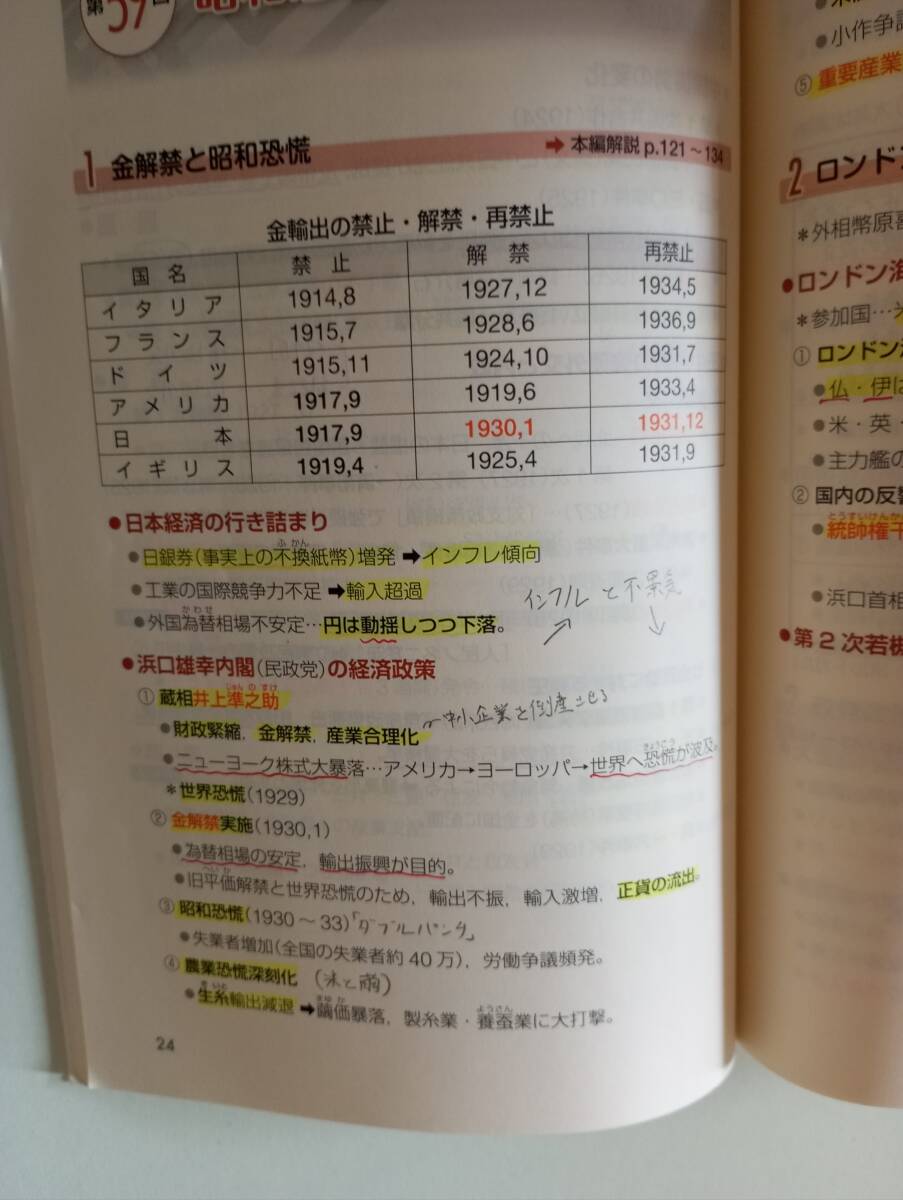 第59回
1 金解禁と昭和恐慌 ➡ 本編解説 p.121～134
金輸出の禁止・解禁・再禁止
国名 禁止 解禁 再禁止
イタリア 1914,8 1927,12 1934,5
フランス 1915,7 1928,6 1936,9
ドイツ 1915,11 1924,10 1931,7
アメリカ 1917,9 1919,6 1933,4
日本 1917,9 1930,1 1931,12
イギリス 1919,4 1925,4 1931,9
●日本経済の行き詰まり
●日銀券(事実上の不換紙幣)増発➡インフレ傾向
●工業の国際競争力不足➡輸入超過
●外国為替相場不安定…円は動揺しつつ下落。
インフレと不景気
●浜口雄幸内閣(民政党)の経済政策
①蔵相井上準之助
●財政緊縮，金解禁，産業合理化
中小企業を倒産させる
●ニューヨーク株式大暴落…アメリカ→ヨーロッパ→世界へ恐慌が波及。
＊世界恐慌(1929)
②金解禁実施(1930,1)
●為替相場の安定，輸出振興が目的。
●旧平価解禁と世界恐慌のため，輸出不振，輸入激増，正貨の流出。
③昭和恐慌(1930～33)「ダブルパンチ」
●失業者増加(全国の失業者約40万)，労働争議頻発。
④農業恐慌深刻化 (米と繭)
●生糸輸出減退➡繭価暴落，製糸業・養蚕業に大打撃。
24
●小作争
⑤重要産業
2 ロンドン
＊外相幣原喜
●ロンドン海
＊参加国…
①ロンドン
●仏・伊は
●米・英・
●主力艦の
②国内の反響
●統帥権干
●浜口首相
●第2次若槻